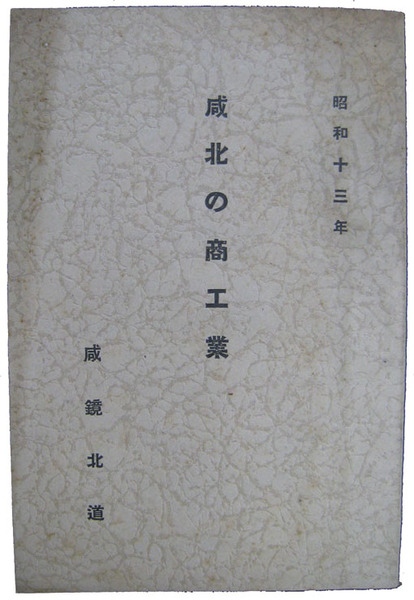 昭和十三年
咸北の商工業
咸鏡北道